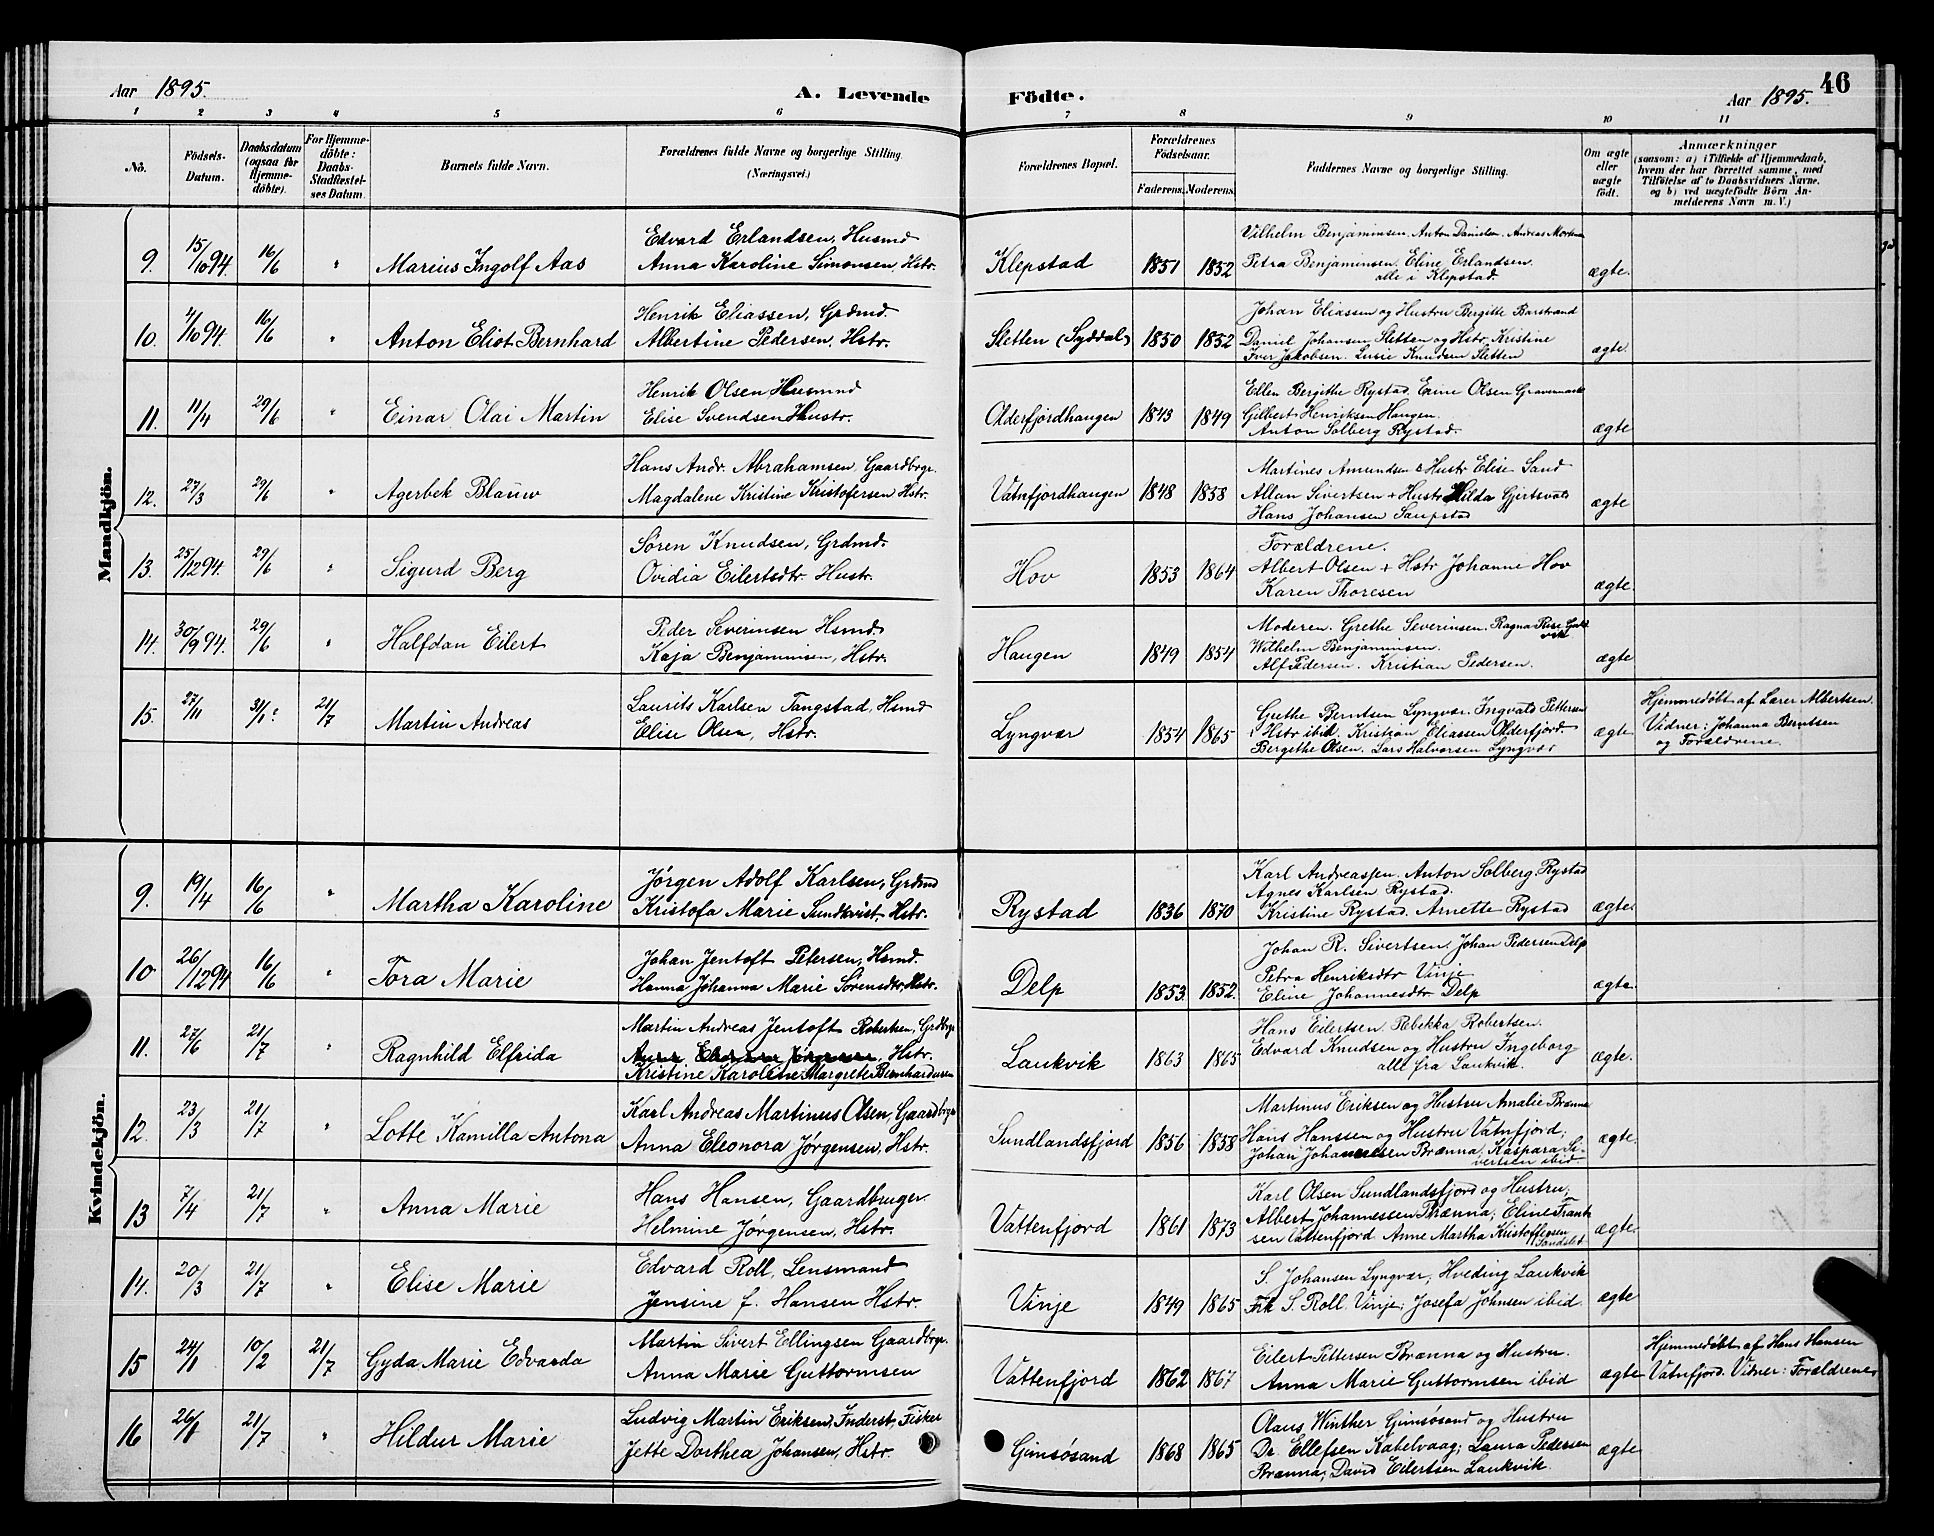 Aar 1895.
A. Levende Födte.
Aar 1895.
46
1 2 3 4 5 6 7 8 9 10 11
No.
Födsels-Datum.
Daabsdatum (ogsaa for Hjemmedöbte).
For Hjemmedöbte: Daabs-Stadfæstelses Datum.
Barnets fulde Navn.
Forældrenes fulde Navne og borgerlige Stilling (Næringsvei.)
Forældrenes Bopæl.
Forældrenes Födselsaar.
Faderens. Moderens.
Faddernes Navne og borgerlige Stilling.
Om ægte eller uægte födt.
Anmærkninger
(saasom: a) i Tilfælde af Hjemmedaab, hvem der har forrettet samme, med Tilföielse af to Daabsvidners Navne, og b) ved uægtefödte Börn Anmelderens Navn m. V.)
Mandkjön.
9. 15/10 94. 16/6 " Marius Ingolf Aas
Edvard Erlandsen, Husmd
Anna Karoline Simonsen, Hstr.
Klepstad 1851 1852
Vilhelm Benjaminsen. Anton Danielsen. Andreas
Petra Benjaminsen. Eline Erlandsen.
alle i Klepstad.
ægte.
10. 4/10 94. 16/6 " Anton Eliot Bernhard
Henrik Eliassen, Grdmd.
Albertine Pedersen, Hstr.
Sletten (Syddal) 1850 1852
Johan Eliassen og Hustru Bergitte Barstrand
Daniel Johansen Sletten og Hstr. Kristine
Iver Jakobsen. Lusie Knudsen Sletten
ægte.
11. 11/4 29/6 " Einar Olai Martin
Henrik Olsen Husmnd
Elise Svendsen Hustr.
Olderfjordhaugen 1843 1849
Ellen Bergithe Rystad. Olsen
Gilbert Henriksen Haugen.
Anton Solberg Rystad.
ægte
12. 27/3 29/6 " Agerbek Blauw
Hans Andr. Abrahamsen, Gaardbrgr.
Magdalene Kristine Kristofersen Hstr.
Vatnfjordhaugen 1848 1858
Martines Amundsen & Hustr Elise Sand
Allan Sivertsen + Hustr Hilda
Hans Johansen Saupstad
ægte
13. 25/12 94. 29/6 " Sigurd Berg
Søren Knudsen, Grdmd.
Ovidia Eilertsdtr. Hustr.
Hov 1853 1864
Forældrene.
Albert Olsen + Hstr Johanne Hov
Karen Thoresen
ægte.
14. 30/9 94. 29/6 " Halfdan Eilert
Peder Severinsen Hsmd.
Kaja Benjaminsen, Hstr.
Haugen 1849 1854
Moderen. Grethe Severinsen. Ragna
Wilhelm Benjaminsen.
Alf Pedersen. Kristian Pedersen.
ægte
15. 27/11 31/1 21/7 Martin Andreas
Laurits Karlsen Tangstad, Hsmd
Elise Olsen, Hstr.
Lyngvær 1854 1865
Grethe Berntsen Lyngvær. Ingvald Pettersen
& Hstr ibid. Kristian Eliassen Olderfjord.
Bergithe Olsen. Lars Halvorsen Lyngvær
ægte
Hjemmedøbt af Lærer Albertsen.
Vidner: Johanna Berntsen
og Forældrene.
Kvindekjön.
9. 19/4 16/6 " Martha Karoline
Jørgen Adolf Karlsen, Grdmd
Kristofa Marie Sundkvist Hstr.
Rystad 1836 1870
Karl Andreassen. Anton Solberg Rystad
Agnes Karlsen Rystad.
Kristine Rystad. Arnette Rystad
ægte.
10 26/12 94 16/6 " Tora Marie
Johan Jentoft Petersen, Hsmd.
Hanna Johanna Marie Sørensdtr. Hstr.
Delp 1853. 1852.
Johan R. Sivertsen. Johan Pedersen Delp
Petra Henriksdtr Vinje
Eline Johannesdtr. Delp
ægte.
11. 27/6 21/7 Ragnhild Elfrida
Martin Andreas Jentoft Robertsen, Grdbrgr
Hstr.
Kristine Karoline Margrete Bernhardusen
Laukvik 1863 1865
Hans Eilertsen. Rebekka Robertsen.
Edvard Knudsen og Hustru Ingeborg
alle fra Laukvik.
ægte.
12. 23/3 21/7 " Lotte Kamilla Antona
Karl Andreas Martinus Olsen, Gaardbrgr
Anna Eleonora Jørgensen, Hstr.
Sundlandsfjord 1856 1858
Martinus Eriksen og Hustru Amalie Brænna
Hans Hanssen og Hustru Vatnfjord;
Johan Johannessen Brænna. Kaspara Sivertsen ibid.
ægte.
13 7/4 21/7 " Anna Marie
Hans Hansen, Gaardbruger.
Helmine Jørgensen, Hstr.
Vattenfjord 1861 1873
Karl Olsen Sundlandsfjord og Hustru;
Albert Johannessen Brænna; Eline Frantsen
Vattenfjord Anne Martha Kristoffersen Sandslet
ægte.
14. 20/3 21/7 " Elise Marie
Edvard Roll, Lensmand
Jensine f. Hansen Hstr.
Vinje 1849 1865
S. Johansen Lyngvær, Hveding Laukvik
Frk S. Roll. Vinje; Josefa Johnsen ibid.
ægte
15 24/1 10/2 21/7 Gyda Marie Edvarda
Martin Sivert Ellingsen Gaardbrgr.
Anna Marie Guttormsen
Vattenfjord 1862 1867
Eilert Pettersen Brænna og Hustru.
Anna Marie Guttormsen ibid
ægte
Hjemmedøbt af Hans Hansen
Vatnfjord. Vidner: Forældrene
16 26/1 21/7 " Hildur Marie
Ludvig Martin Eriksen, Inderst, Fisker
Jette Dorthea Johansen, Hstr.
Gimsøsand 1868 1865
Olaus Winther Gimsøsand og Hustru
Dr. Ellefsen Kabelvaag; Laura Pedersen
Brænna; David Eilertsen Laukvik.
ægte